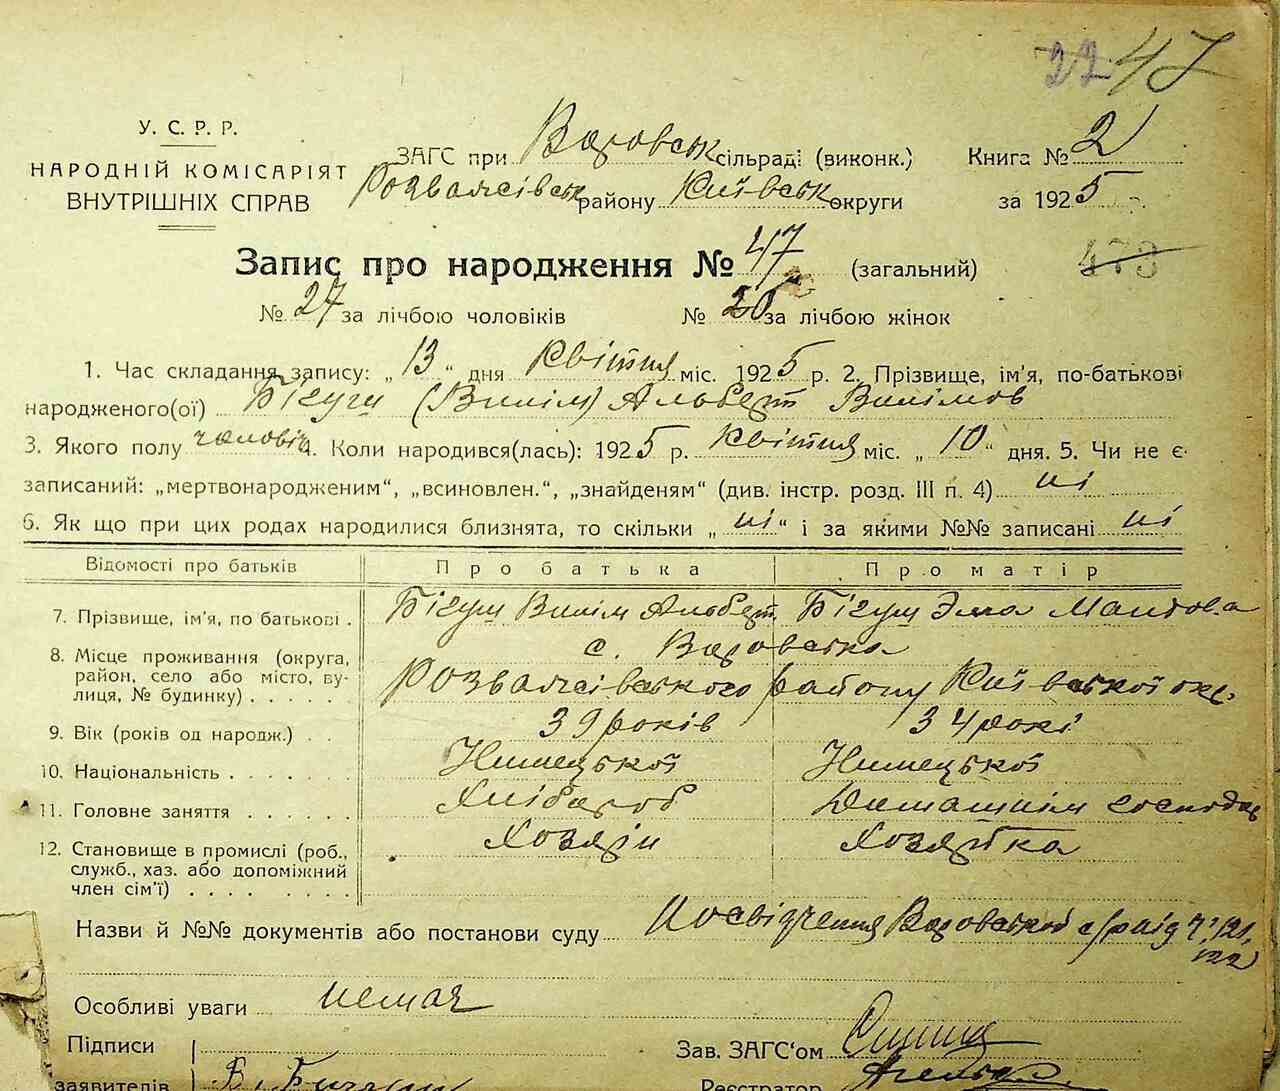 22 47
У. С. Р. Р.
НАРОДНІЙ КОМІСАРІЯТ
ВНУТРІШНІХ СПРАВ
ЗАГС при сільраді (виконк.)
Розважівськ району Київськ округи
Книга № 2
за 1925 р.
473
Запис про народження № 47 (загальний)
№ 27 за лічбою чоловіків № 20 за лічбою жінок
1. Час складання запису: „ 13 “ дня Квітня міс. 1925 р. 2. Прізвище, ім'я, по-батькові
народженого(ої) (Вилім) Альберт Вилімов
3. Якого полу чоловіч 4. Коли народився(лась): 1925 р. Квітня міс. „ 10 “ дня. 5. Чи не є
записаний: „мертвонародженим“, „всиновлен.“, „знайденям“ (див. інстр. розд. III п. 4) ні
6. Як що при цих родах народилися близнята, то скільки „ ні “ і за якими №№ записані ні
Відомості про батьків Про батька Про матір
7. Прізвище, ім'я, по батькові . Бігун Вилім Альберт. Бігун Эма
8. Місце проживання (округа, район, село або місто, вулиця, № будинку) . . . . . с.
Розважівського району Київської окр.
9. Вік (років од народж.) . . 39 років 34 рокі
10. Національність . . . . . . Нимецької Нимецької
11. Головне заняття . . . . . . Хлібороб господар
12. Становище в промислі (роб., служб., хаз. або допоміжний член сім'ї) . . . . . Хозяїн Хозяйка
Назви й №№ документів або постанови суду Посвідчення с/раід ч. 121,
122
Особливі уваги немає
Підписи
Зав. ЗАГС'ом
заявителів
Реєстратор